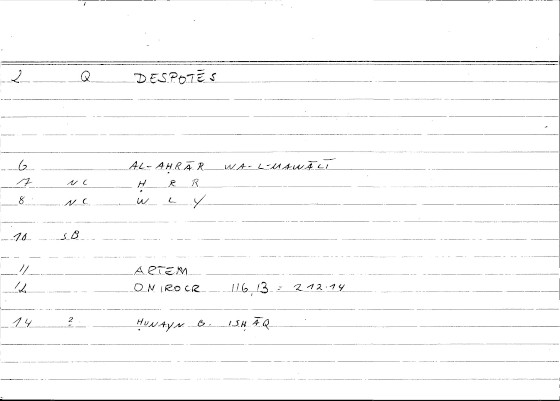 2 Q DESPOTĒS
6 AL-AḤRĀR WA-L-MAWĀLĪ
7 NC Ḥ R R
8 NC W L Y
10 SB
11 ARTEM
12 ONIROCR 116,13 = 212.14
14 ? ḤUNAYN B. ISḤĀQ